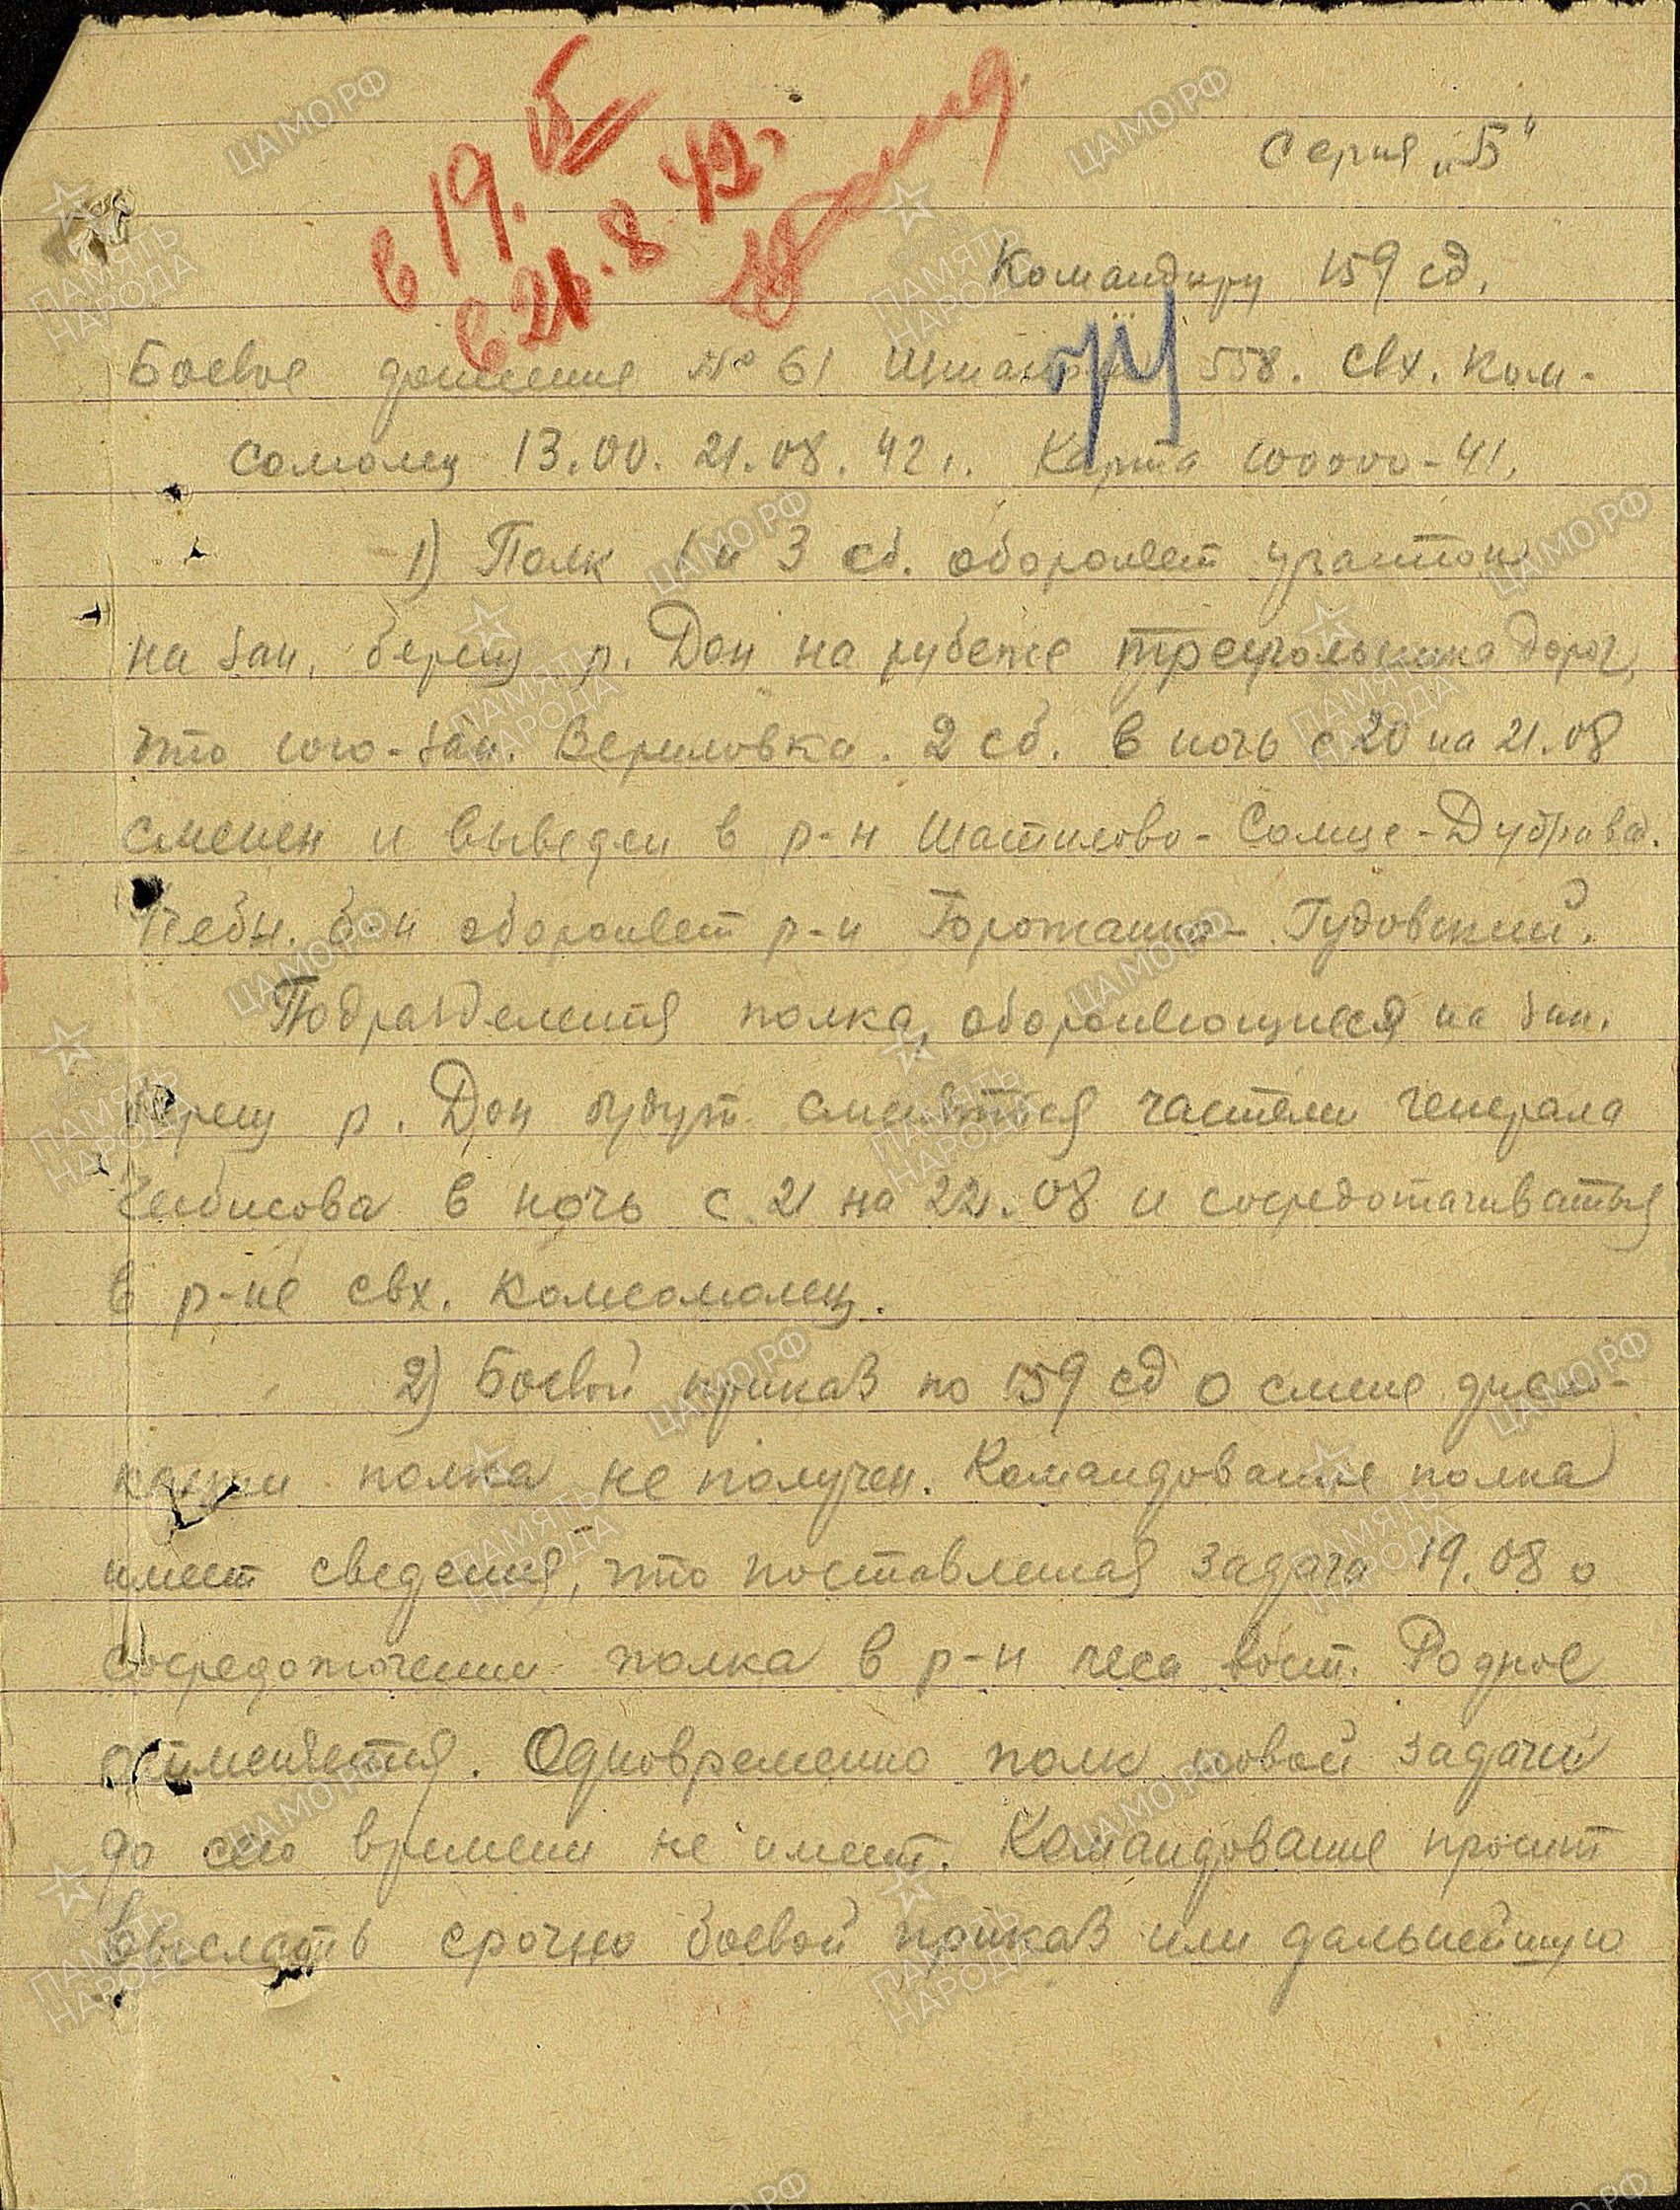 Серия „Б"
19.15
21.8.42.
Командиру 159 сд.
Боевое донесение № 61 Штабрига 558. свх. Ком-
сомолец 13.00. 21.08.42 г. Карта 100000-41.
1) Полк 1 и 3 сб. обороняет участок
на зап. берегу р. Дон на рубеже треугольника дорог,
что юго-зап. Вериловка. 2 сб. в ночь с 20 на 21.08
сменен и выведен в р-н Шатилово - Солнце - Дубрава.
Учебн. б-н обороняет р-н Горожанка - Гудовский.
Подразделения полка, обороняющиеся на зап.
берегу р. Дон будут сменяться частями генерала
Чибисова в ночь с 21 на 22.08 и сосредотачиваться
в р-не свх. Комсомолец.
2) Боевой приказ по 159 сд о смене дисло-
кации полка не получен. Командование полка
имеет сведения, что поставленная задача 19.08 о
сосредоточении полка в р-н леса вост. Родное
отменяется. Одновременно полк новой задачи
до сего времени не имеет. Командование просит
выслать срочно боевой приказ или дальнейшую
ЦАМО РФ
ПАМЯТЬ
НАРОДА